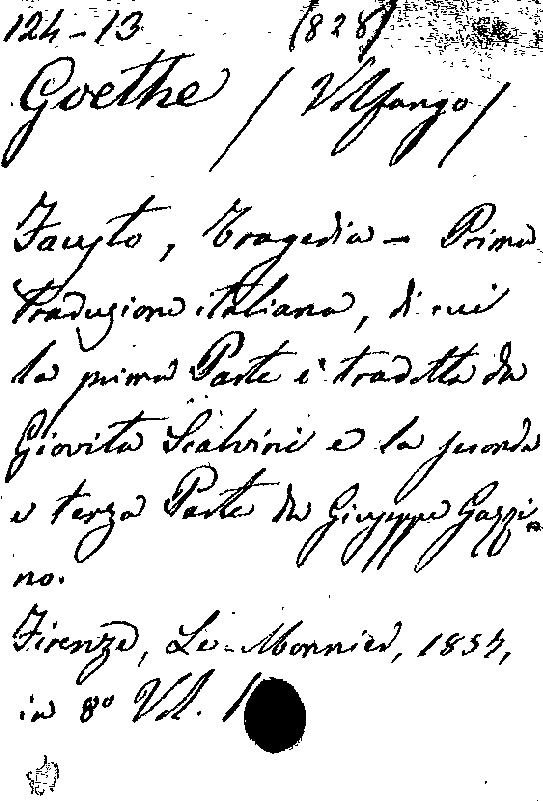 124-13 (828)
Goethe / Volfango /
Fausto, Tragedia - Prima
traduzione italiana, di cui
la prima Parte è tradotta da
Giovita Scalvini e la seconda
e terza Parte da Giuseppe Gazzi-
no.
Firenze, Le-Monnier, 1854,
in 8º Vol. 1